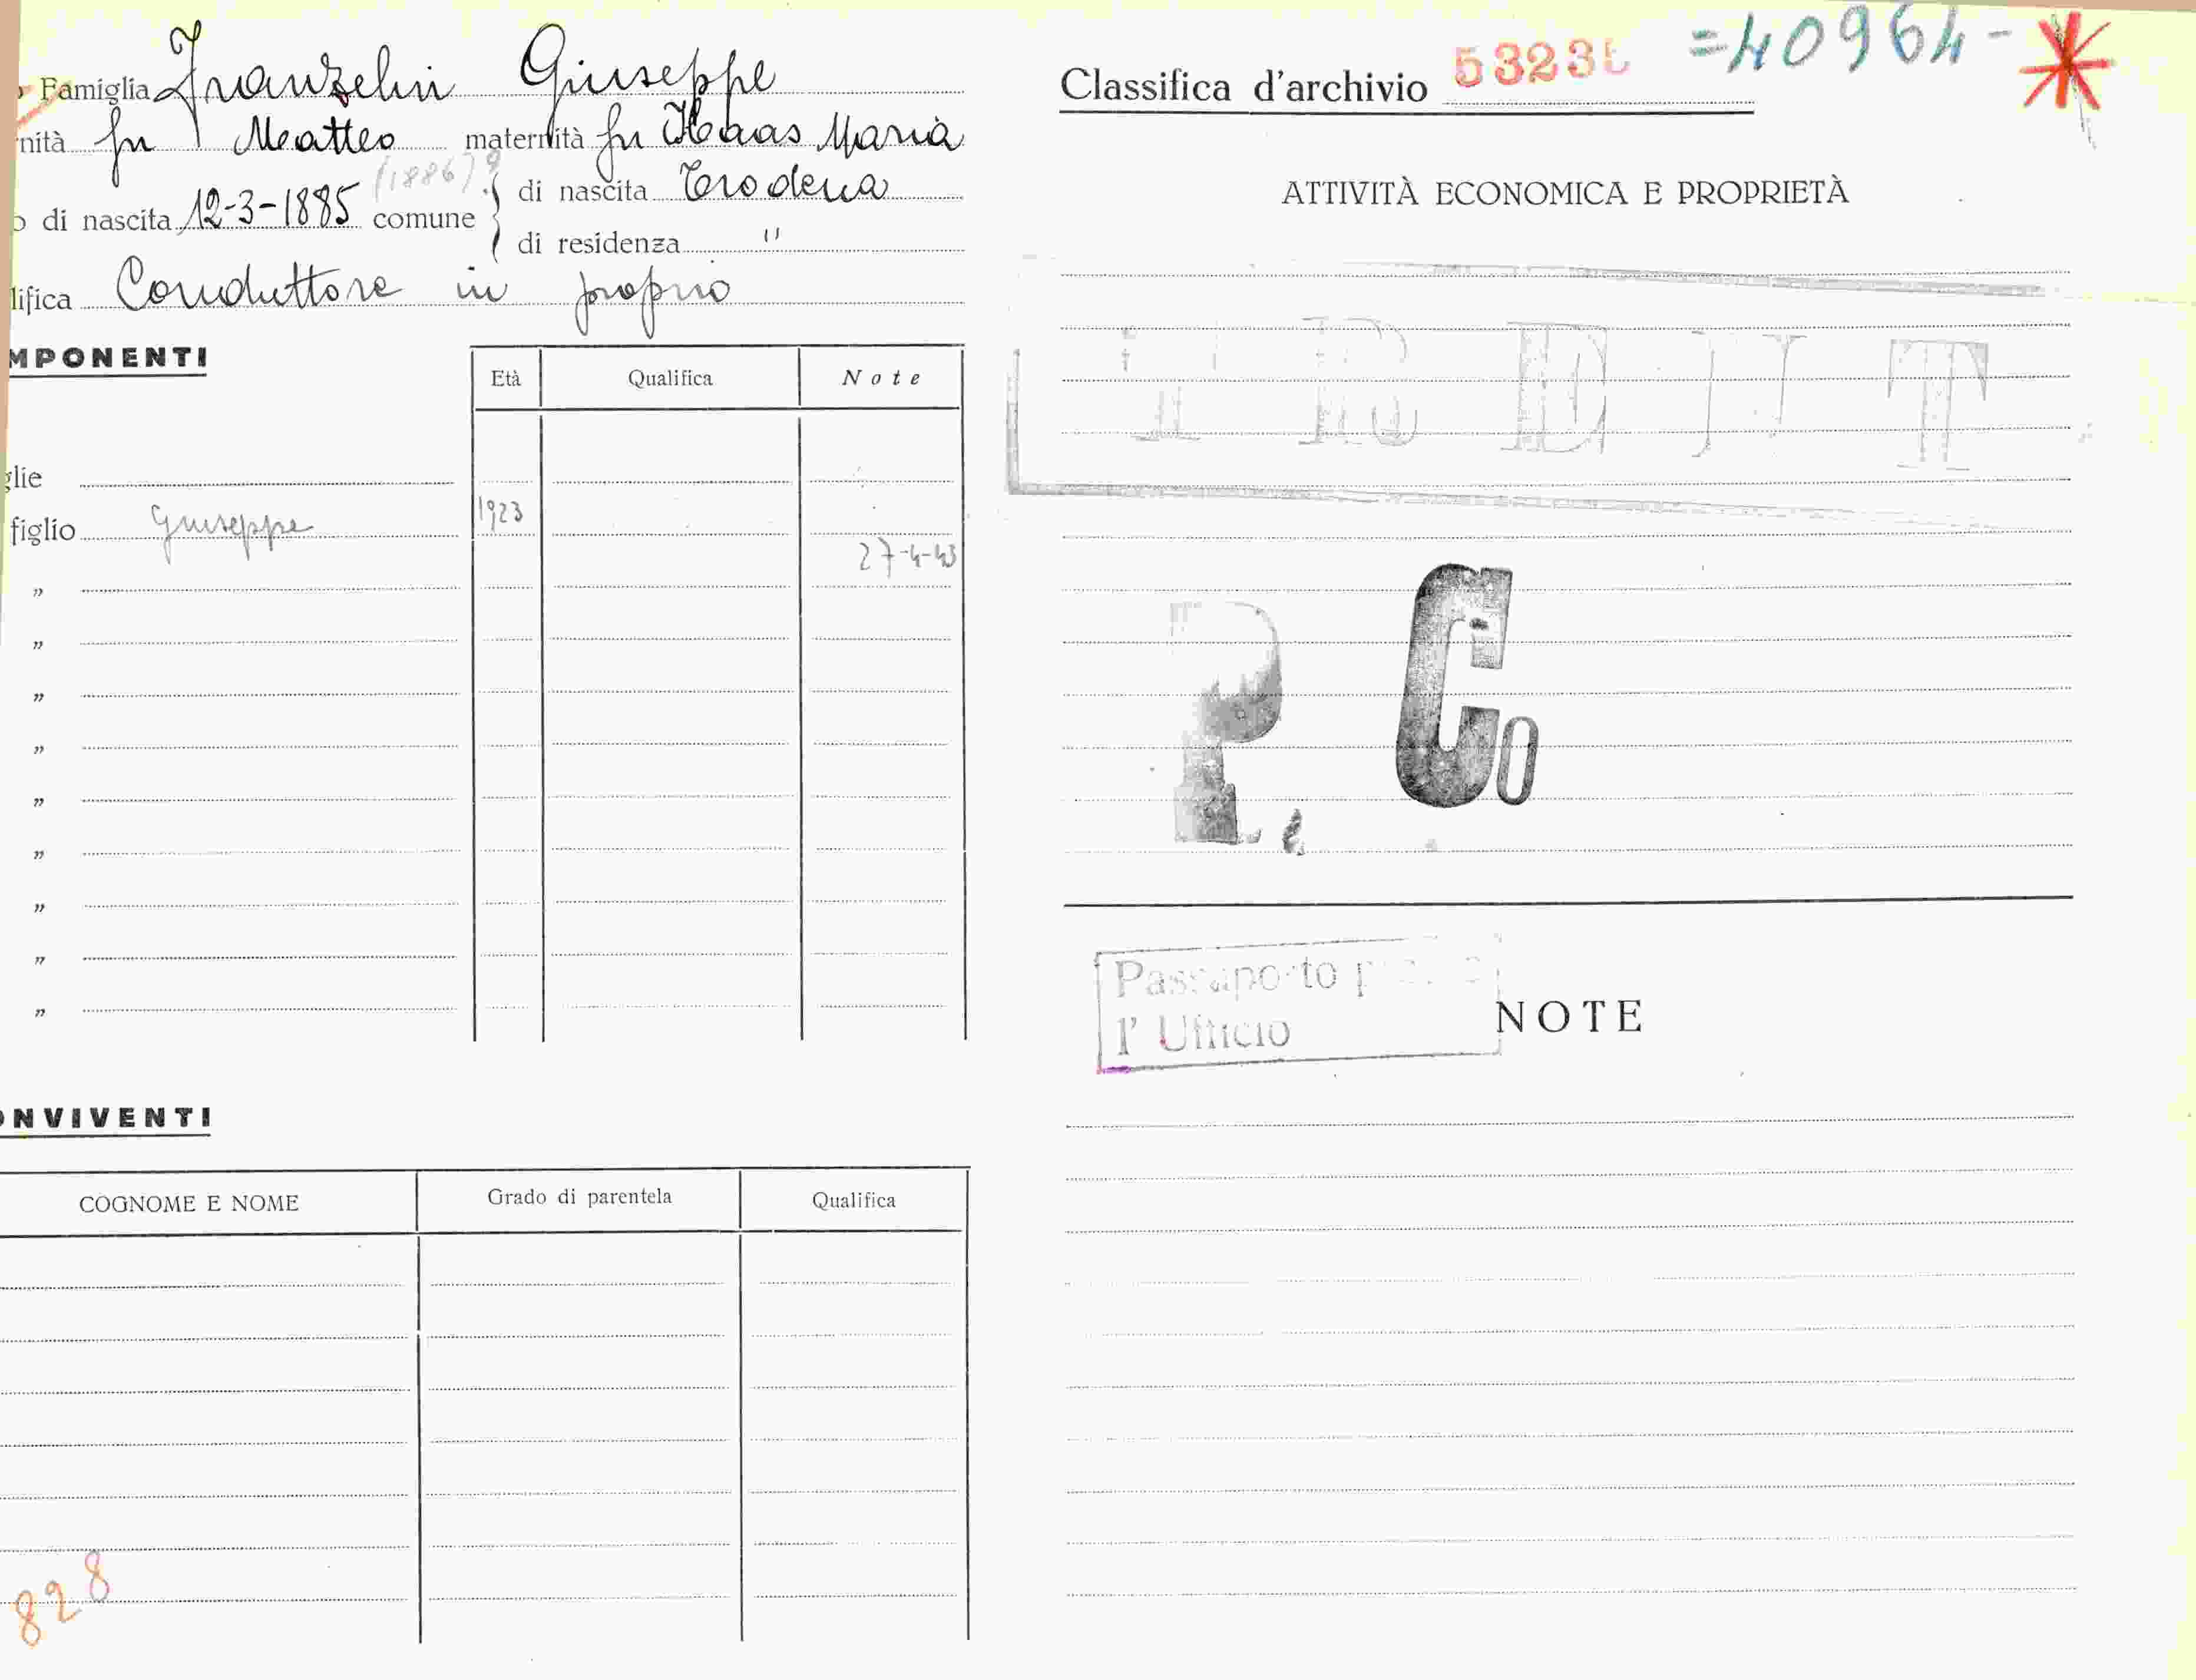 Famiglia Franzelin Giuseppe
nità fu Matteo maternità fu Haas Maria
(1886)?
di nascita 12-3-1885 comune di nascita Trodena
di residenza "
lifica Conduttore in proprio
MPONENTI
Età Qualifica Note
glie
figlio Giuseppe 1923
27-4-43
"
"
"
"
"
"
"
"
"
ONVIVENTI
COGNOME E NOME Grado di parentela Qualifica
828
Classifica d'archivio =40964-
ATTIVITÀ ECONOMICA E PROPRIETÀ
P. Co
Passaporto
l' Ufficio
NOTE